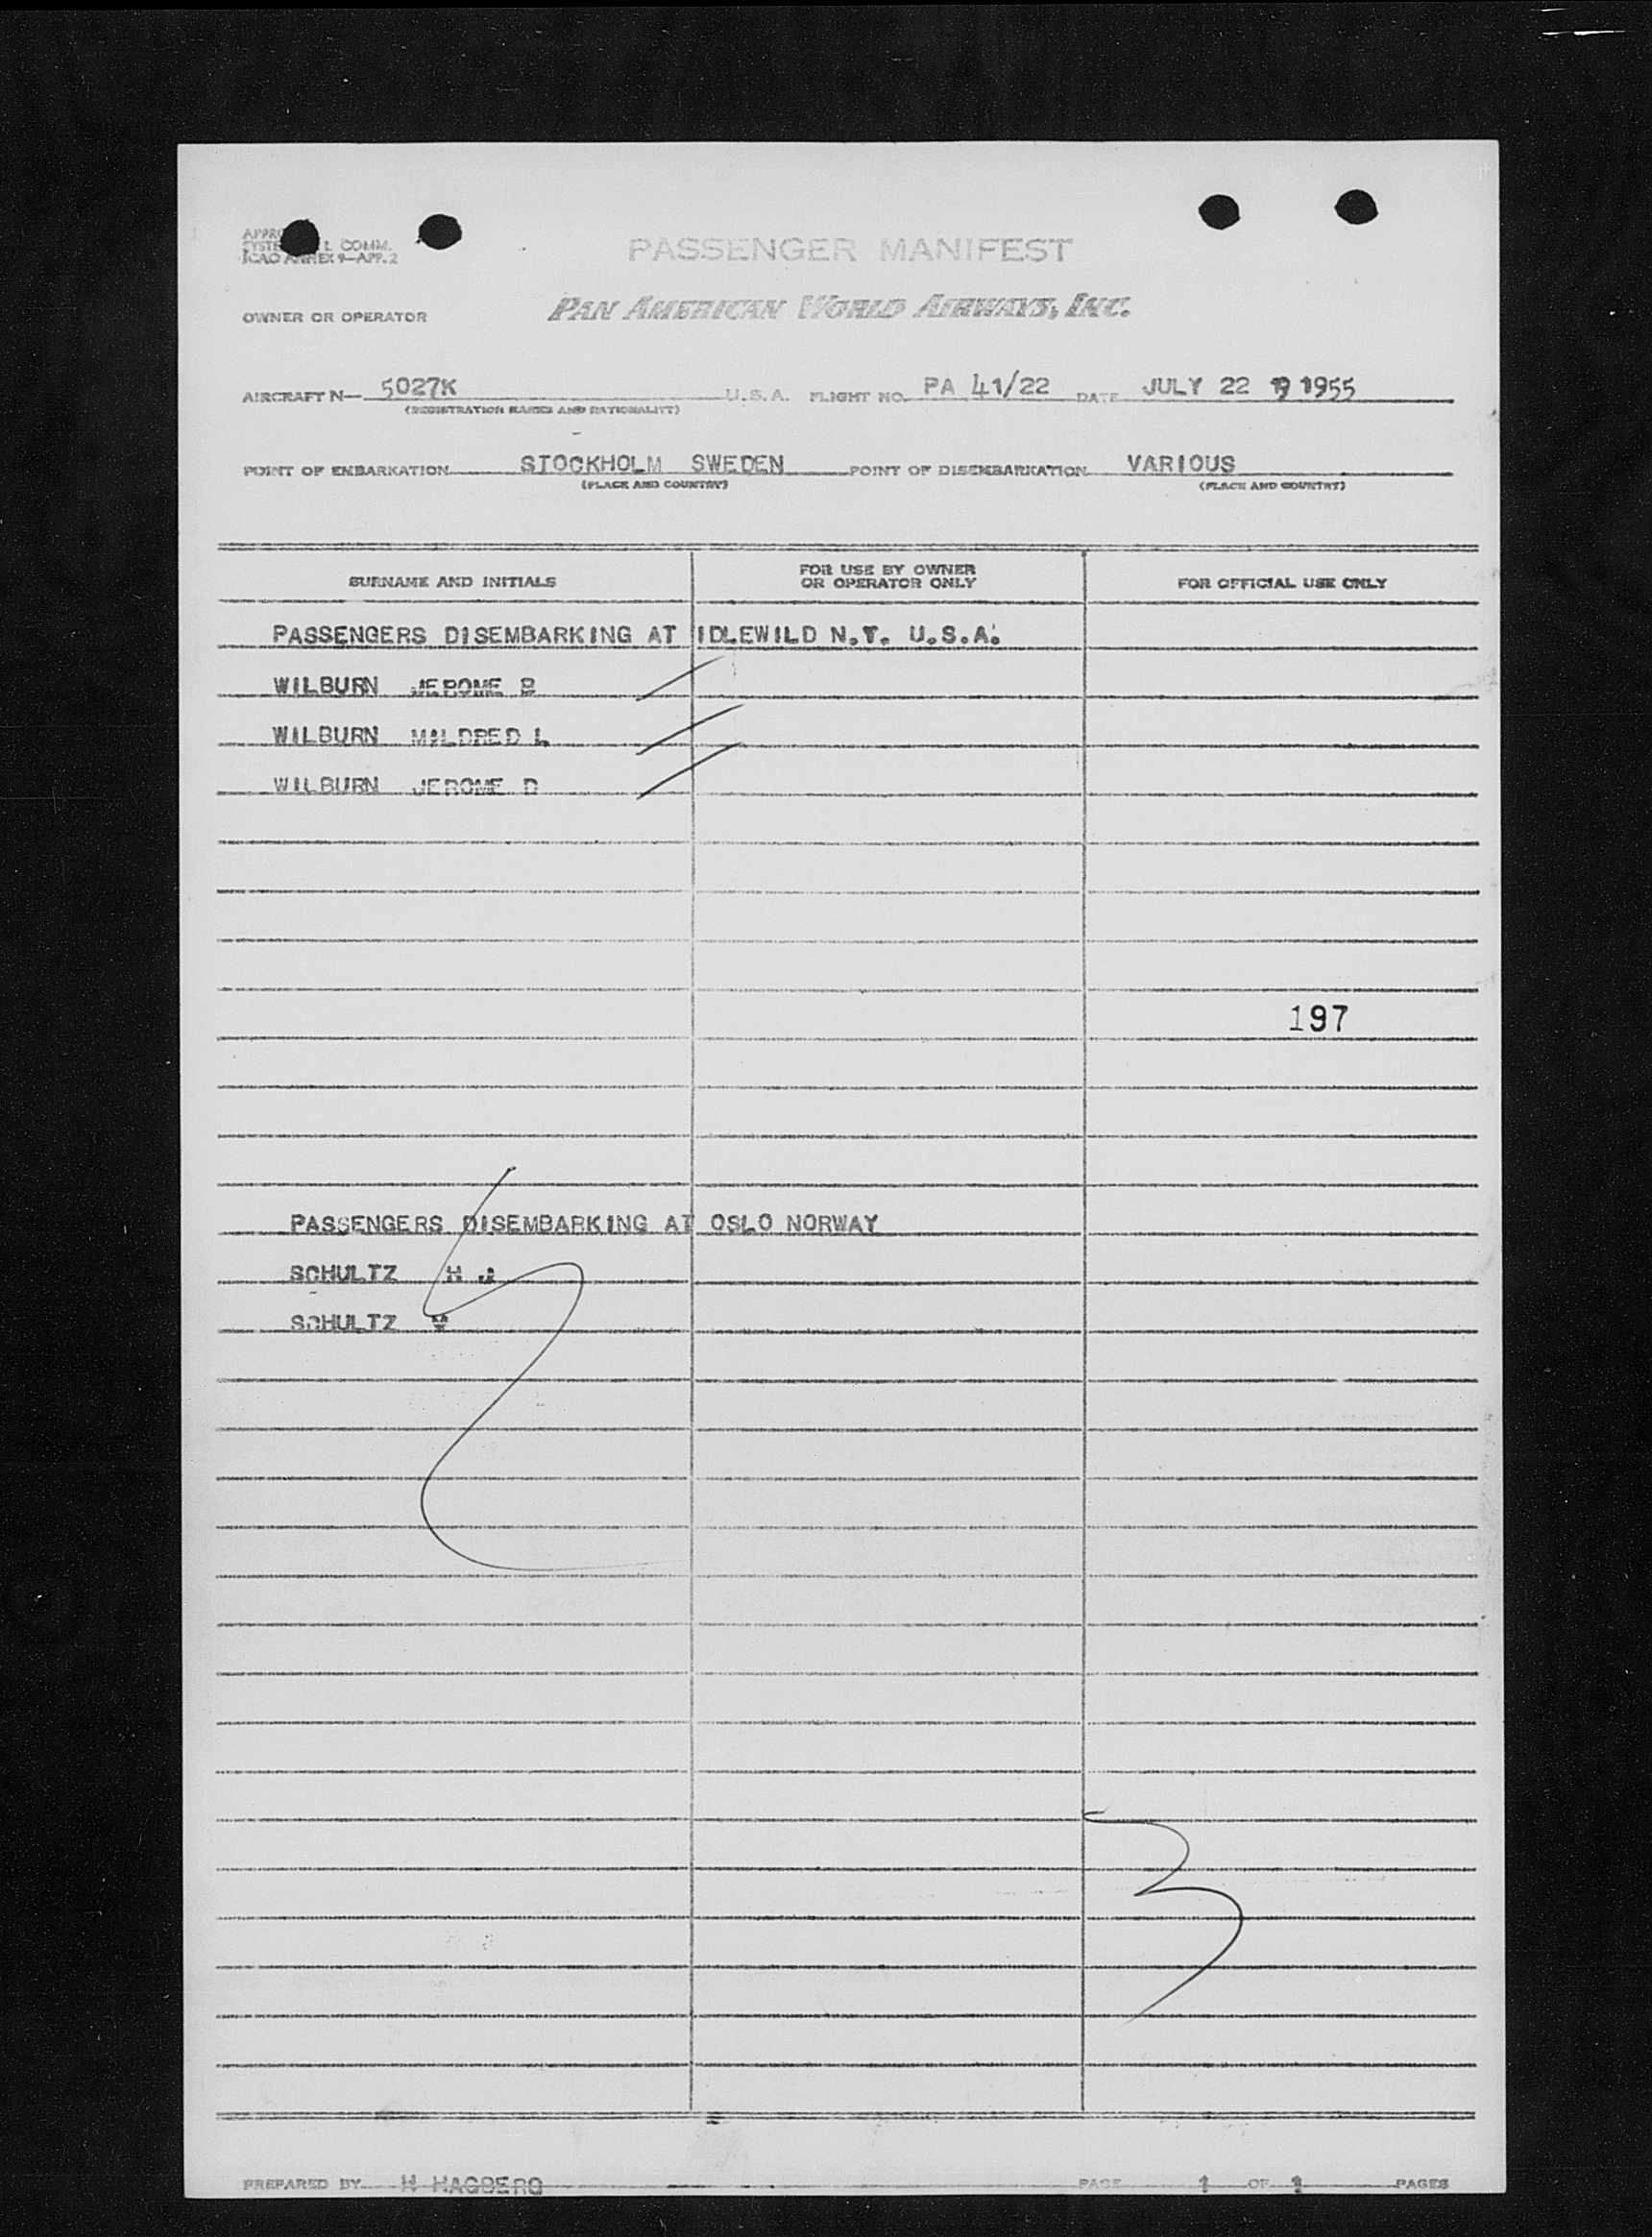 APPRO
SYSTE L COMM.
ICAO ANNEX 9—APP. 2
PASSENGER MANIFEST
OWNER OR OPERATOR PAN AMERICAN WORLD AIRWAYS, INC.
AIRCRAFT N— 5027K U.S.A. FLIGHT NO. PA 41/22 DATE JULY 22 1955
(REGISTRATION MARKS AND NATIONALITY)
POINT OF EMBARKATION STOCKHOLM SWEDEN POINT OF DISEMBARKATION VARIOUS
(PLACE AND COUNTRY) (PLACE AND COUNTRY)
SURNAME AND INITIALS FOR USE BY OWNER OR OPERATOR ONLY FOR OFFICIAL USE ONLY
PASSENGERS DISEMBARKING AT IDLEWILD N.Y. U.S.A.
WILBURN JEROME B
WILBURN MILDRED L
WILBURN JEROME D
197
PASSENGERS DISEMBARKING AT OSLO NORWAY
SCHULTZ H J
SCHULTZ
3
PREPARED BY H HAGBERG PAGE 1 OF 1 PAGES